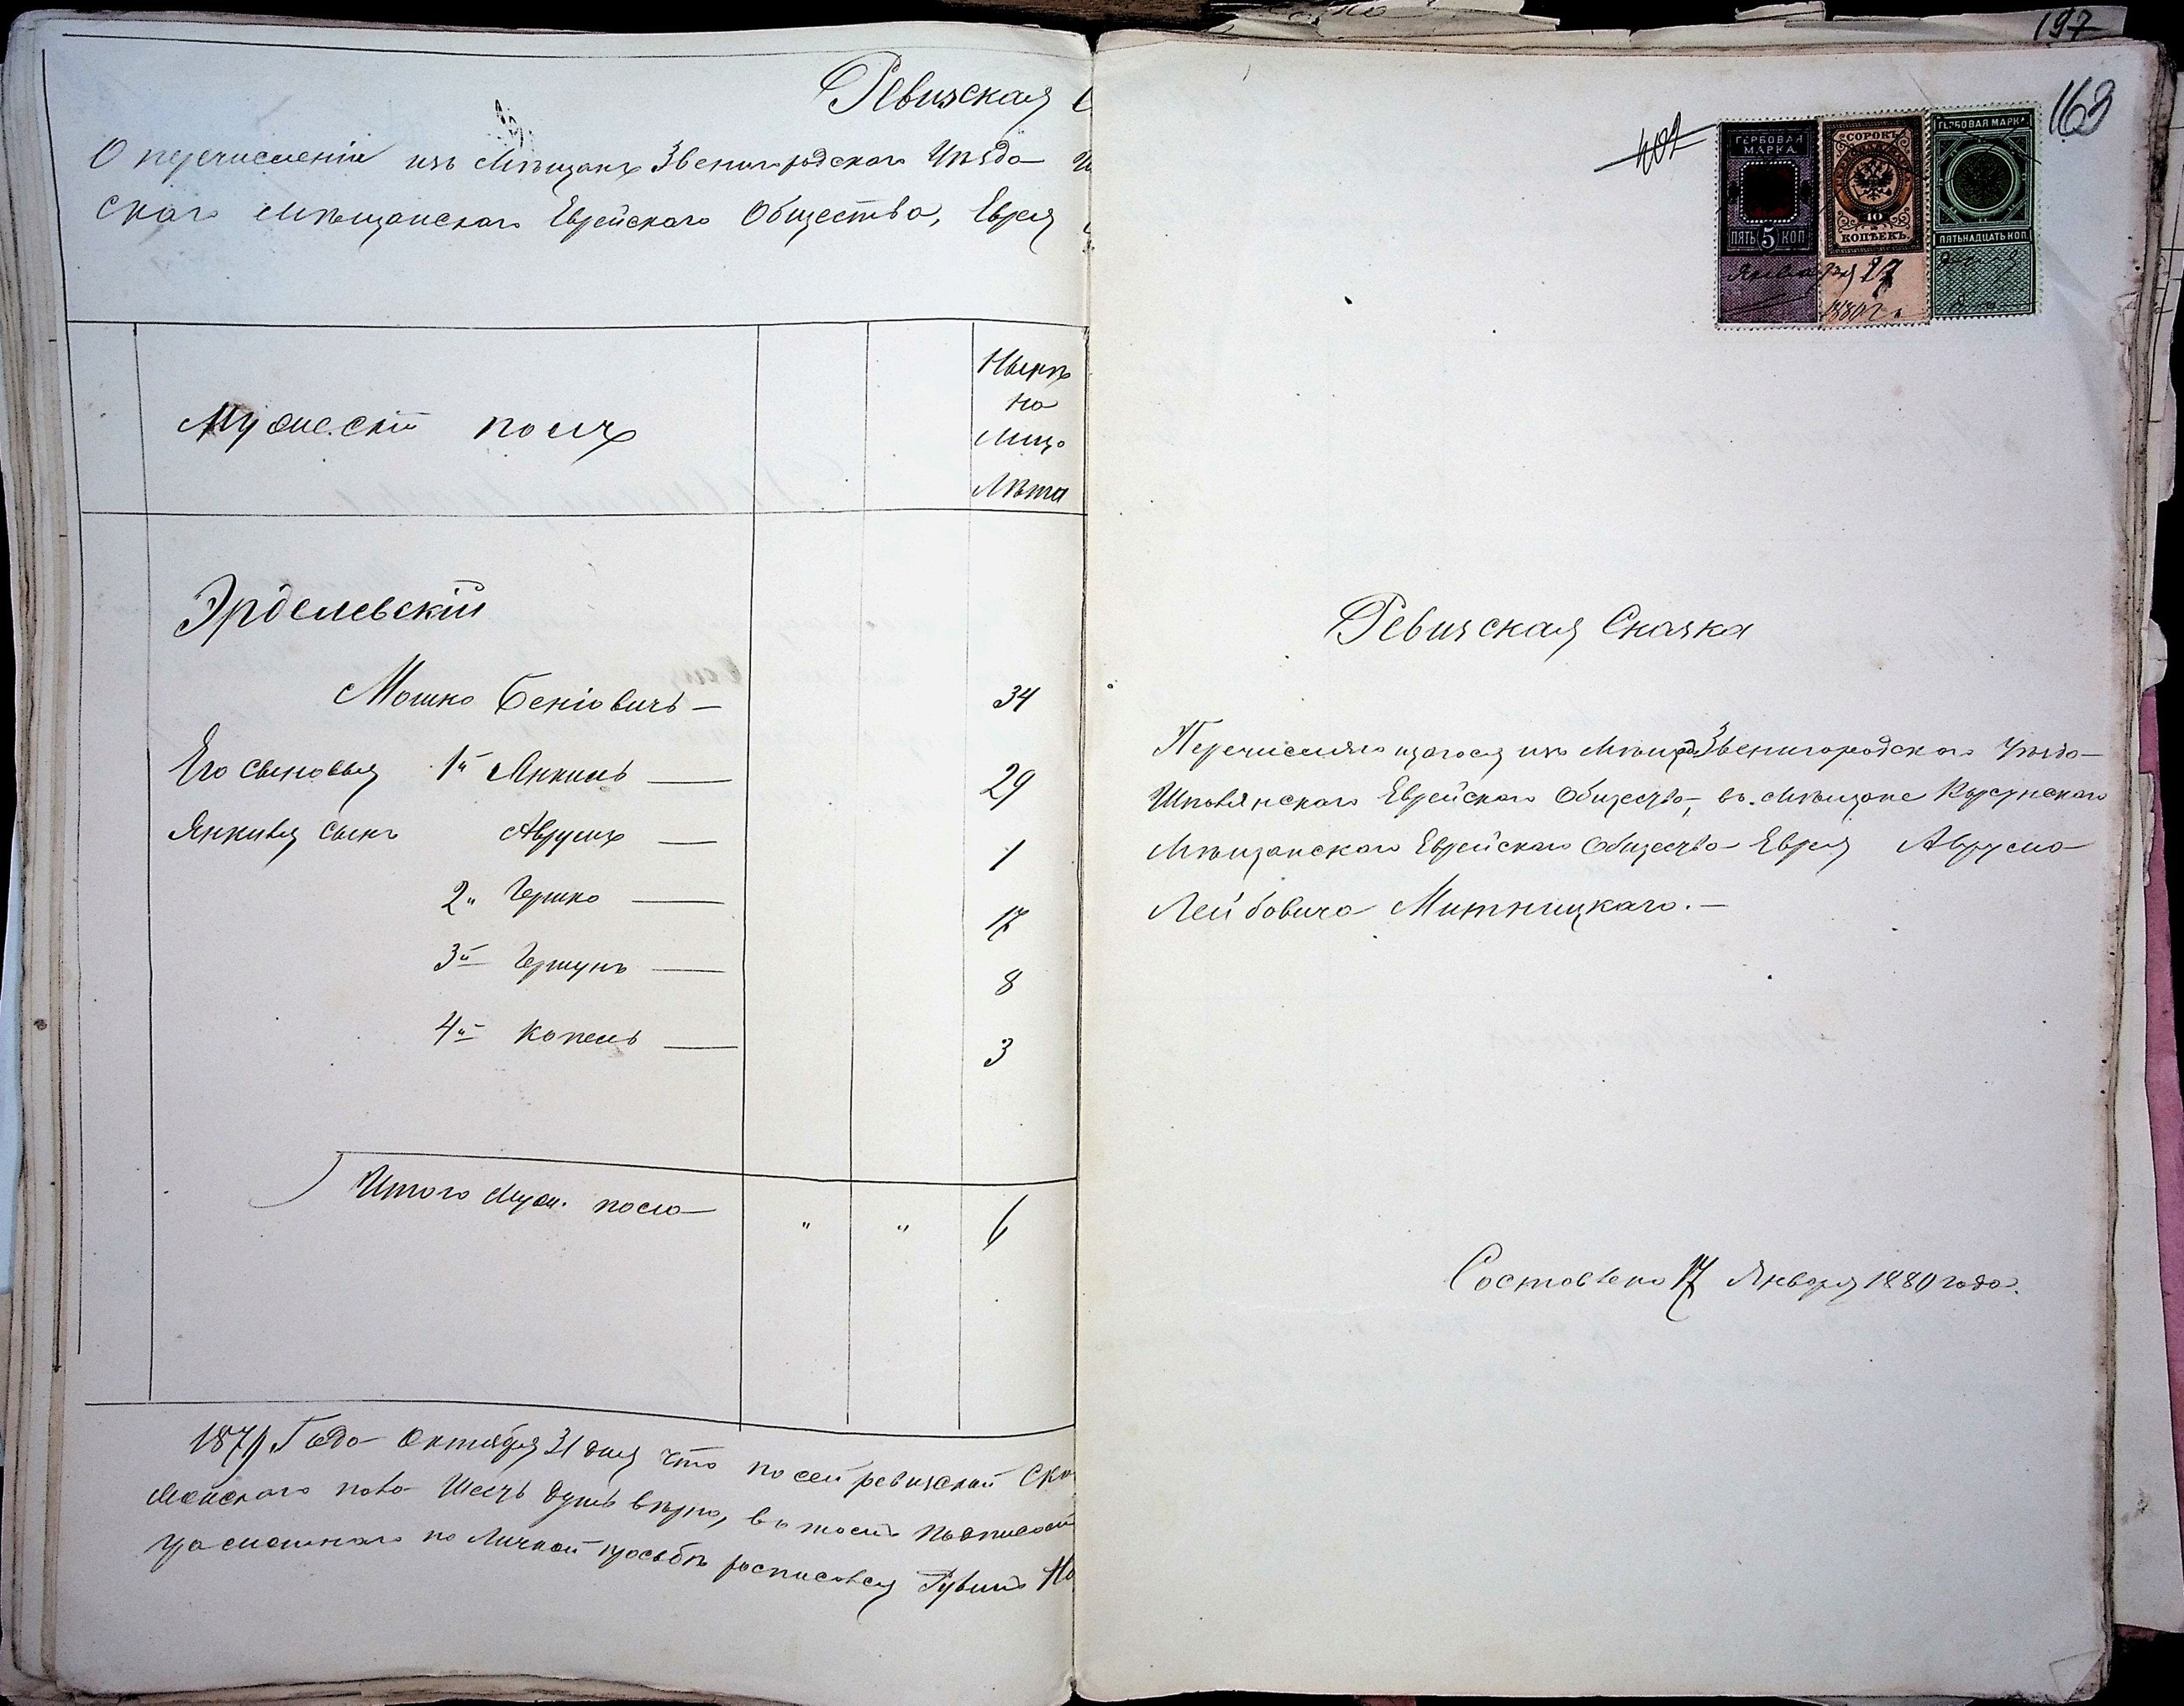 Ревизская С
О перечисленіи изъ Мѣщанъ Звенигородскаго Уѣзда
скаго Мѣщанскаго Еврейскаго Общества, Еврея
Мужескій полъ
Нынѣ
на
Лицо
Лѣта
Эрделевскій
Мошко Беніовичъ — 34
Его сыновья 1й Янкель — 29
Янкеля сынъ Аврумъ — 1
2й Гершко — 17
3й Гершунъ — 8
4й Копель — 3
Итого Муж. пола " " 6
1879 Года Октября 31 дня что по сей ревизской Ска
Мужескаго пола Шесть душъ вѣрно, въ томъ
по Личной просьбѣ росписался Рувинъ
197
163
402
ГЕРБОВАЯ
МАРКА
ПЯТЬ 5 КОП
СОРОКЪ
КОПѢЕКЪ
ГЕРБОВАЯ МАРКА
ПЯТНАДЦАТЬ КОП.
Января 17
1880 г.
Ревизская Сказка
Перечисляющагося изъ Мѣщанъ Звенигородскаго Уѣзда
Шполянскаго Еврейскаго Общества, въ Мѣщане Корсунскаго
Мѣщанскаго Еврейскаго Общества Еврея Аврума
Лейбовича Митницкаго. —
Составлена 17 Января 1880 года.